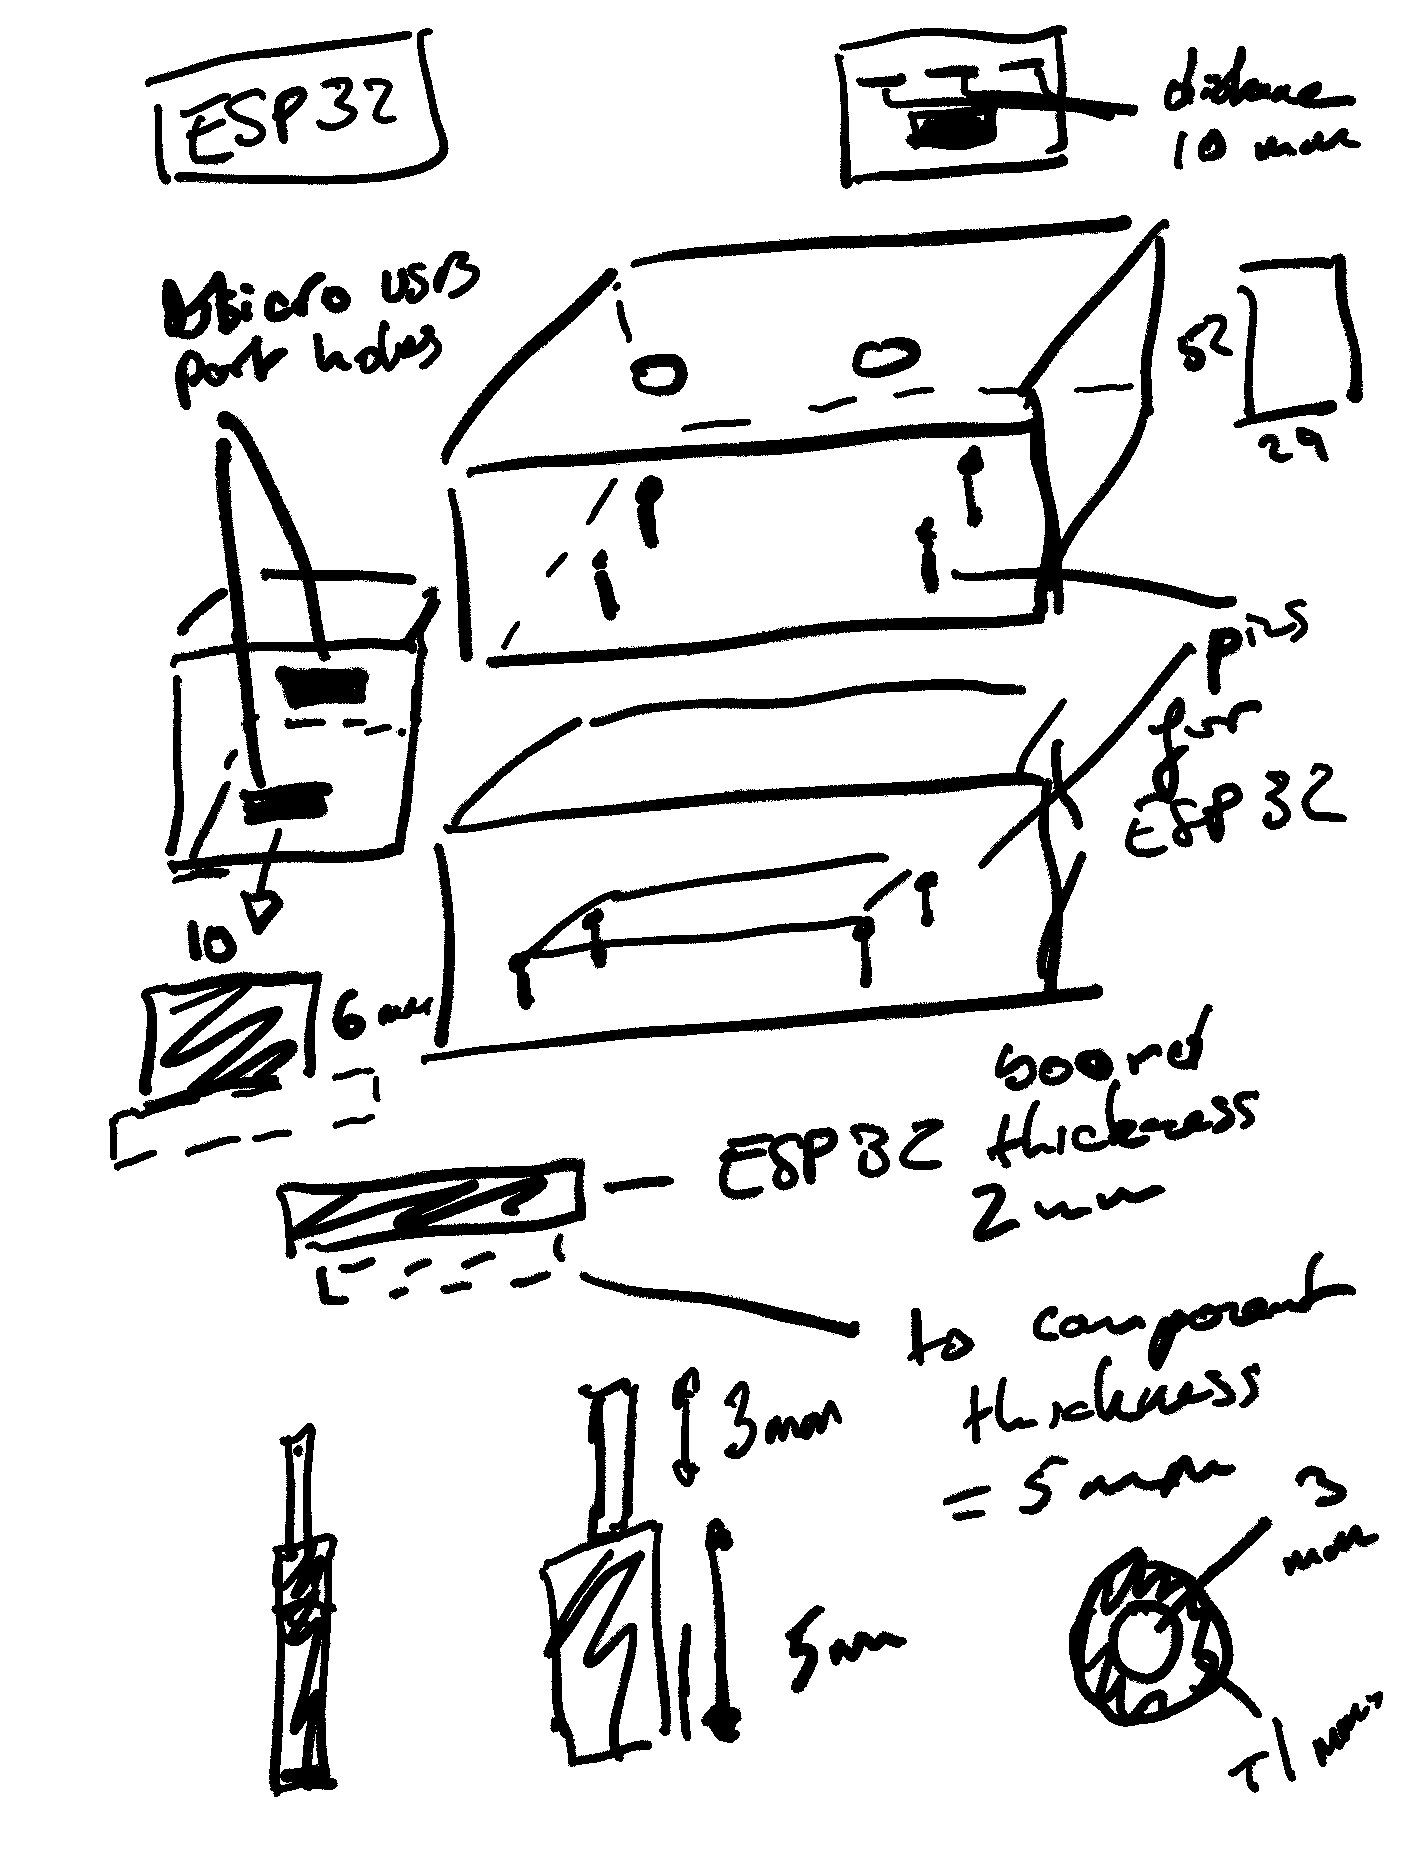 ESP32
distance
10 mm
Micro USB
port holes
52
29
pins
for
ESP32
10
6 mm
board
thickness
2 mm
ESP32
to component
thickness
= 5 mm
3 mm
5 mm
3
mm